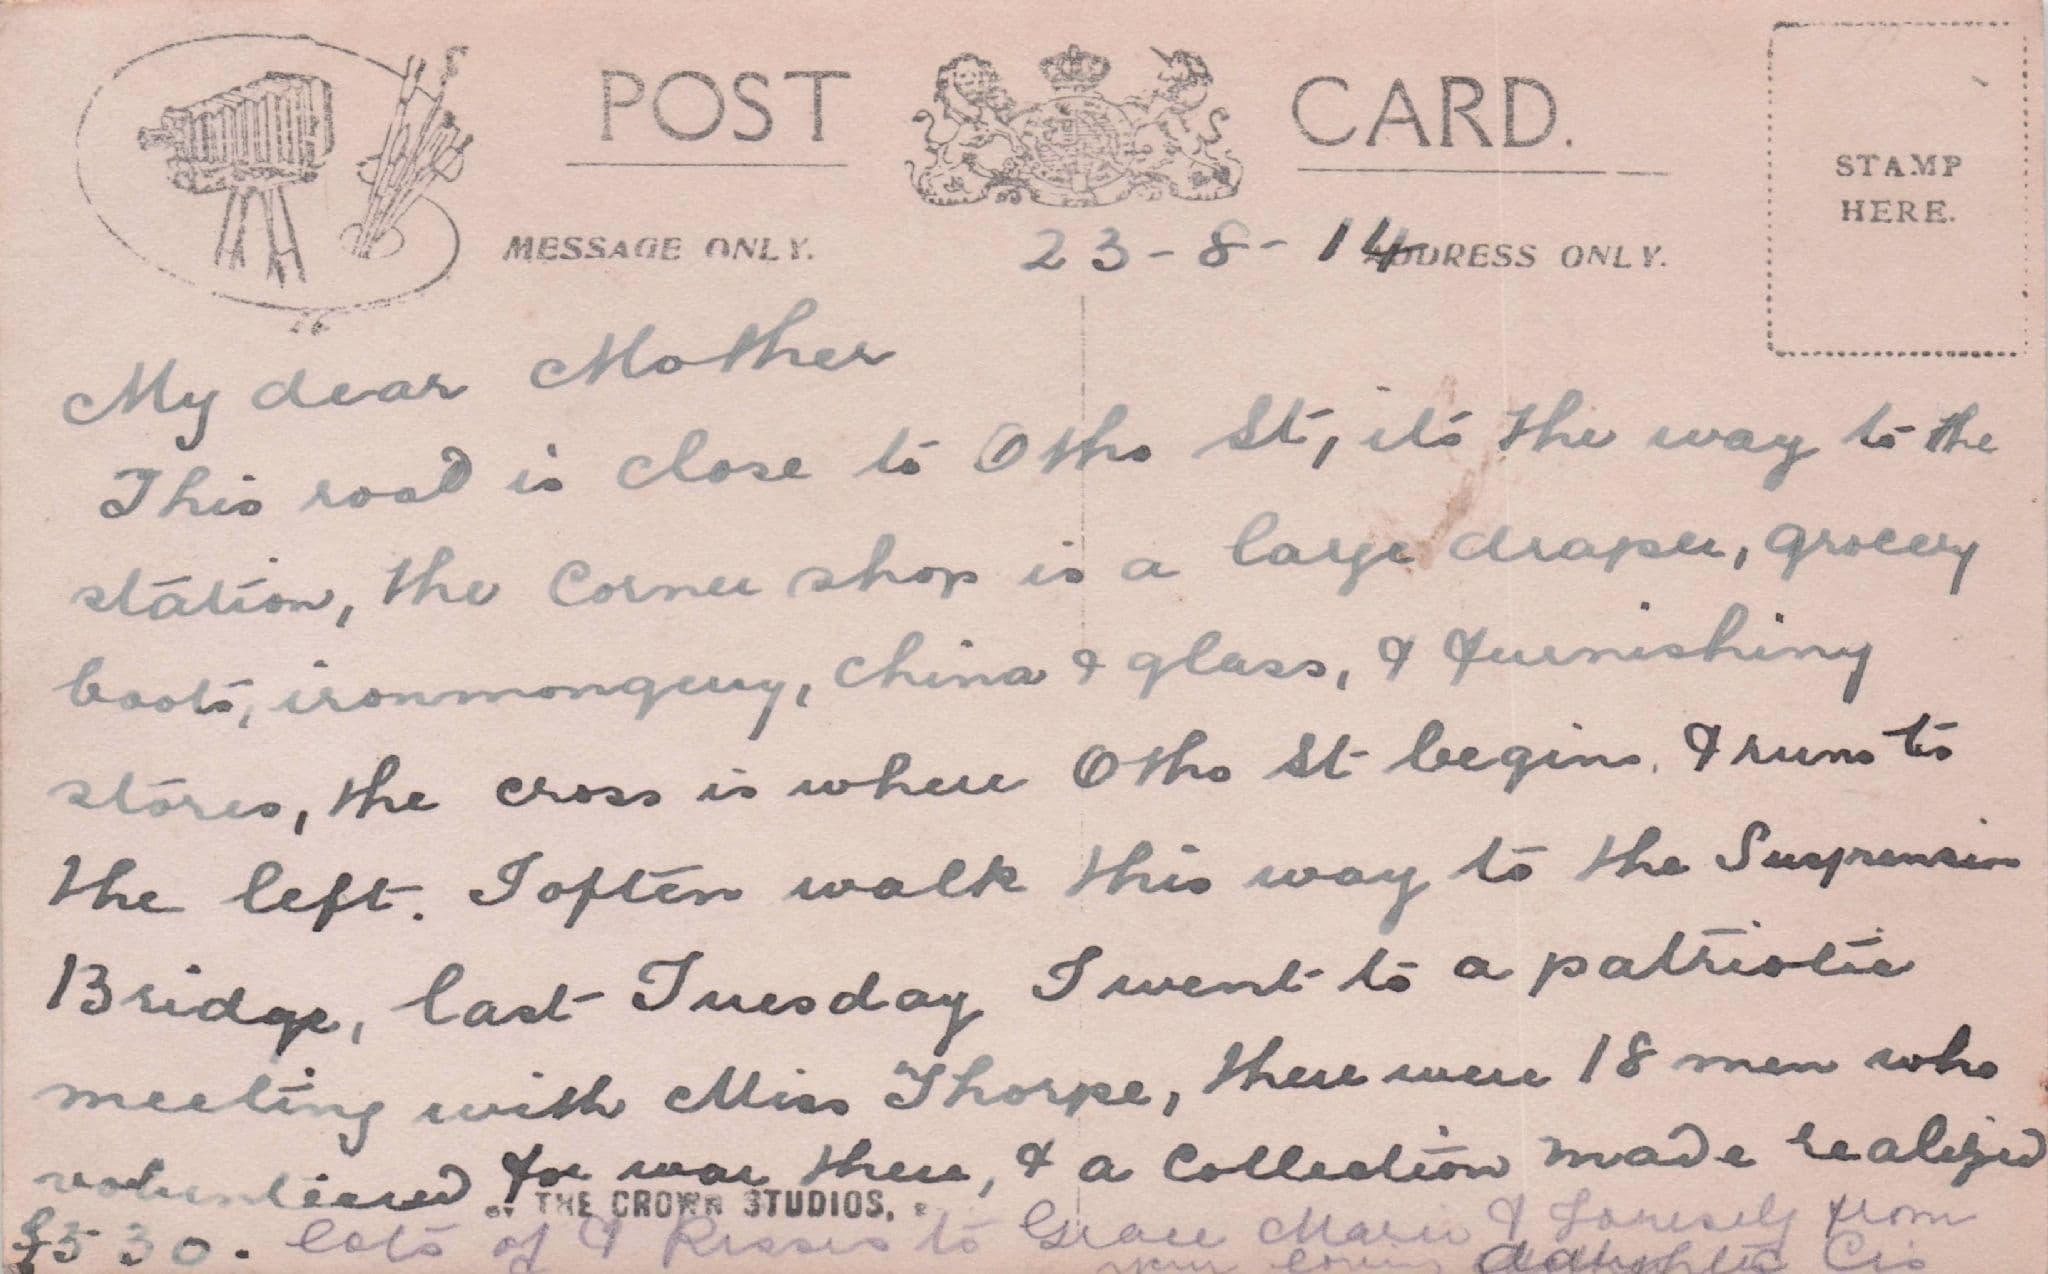 POST CARD.
STAMP
HERE.
MESSAGE ONLY.
23-8-14
ADDRESS ONLY.
My dear Mother
This road is close to Otho St, its the way to the
station, the corner shop is a large draper, grocery
boots, ironmongery, china & glass, & furnishing
stores, the cross is where Otho St begins. & runs to
the left. I often walk this way to the Suspension
Bridge, last Tuesday I went to a patriotic
meeting with Miss Thorpe, there were 18 men who
volunteered for war there, & a collection made realized
THE CROWN STUDIOS,
£530. lots of & Kisses to Grace Marie & from
your loving daughter Cis